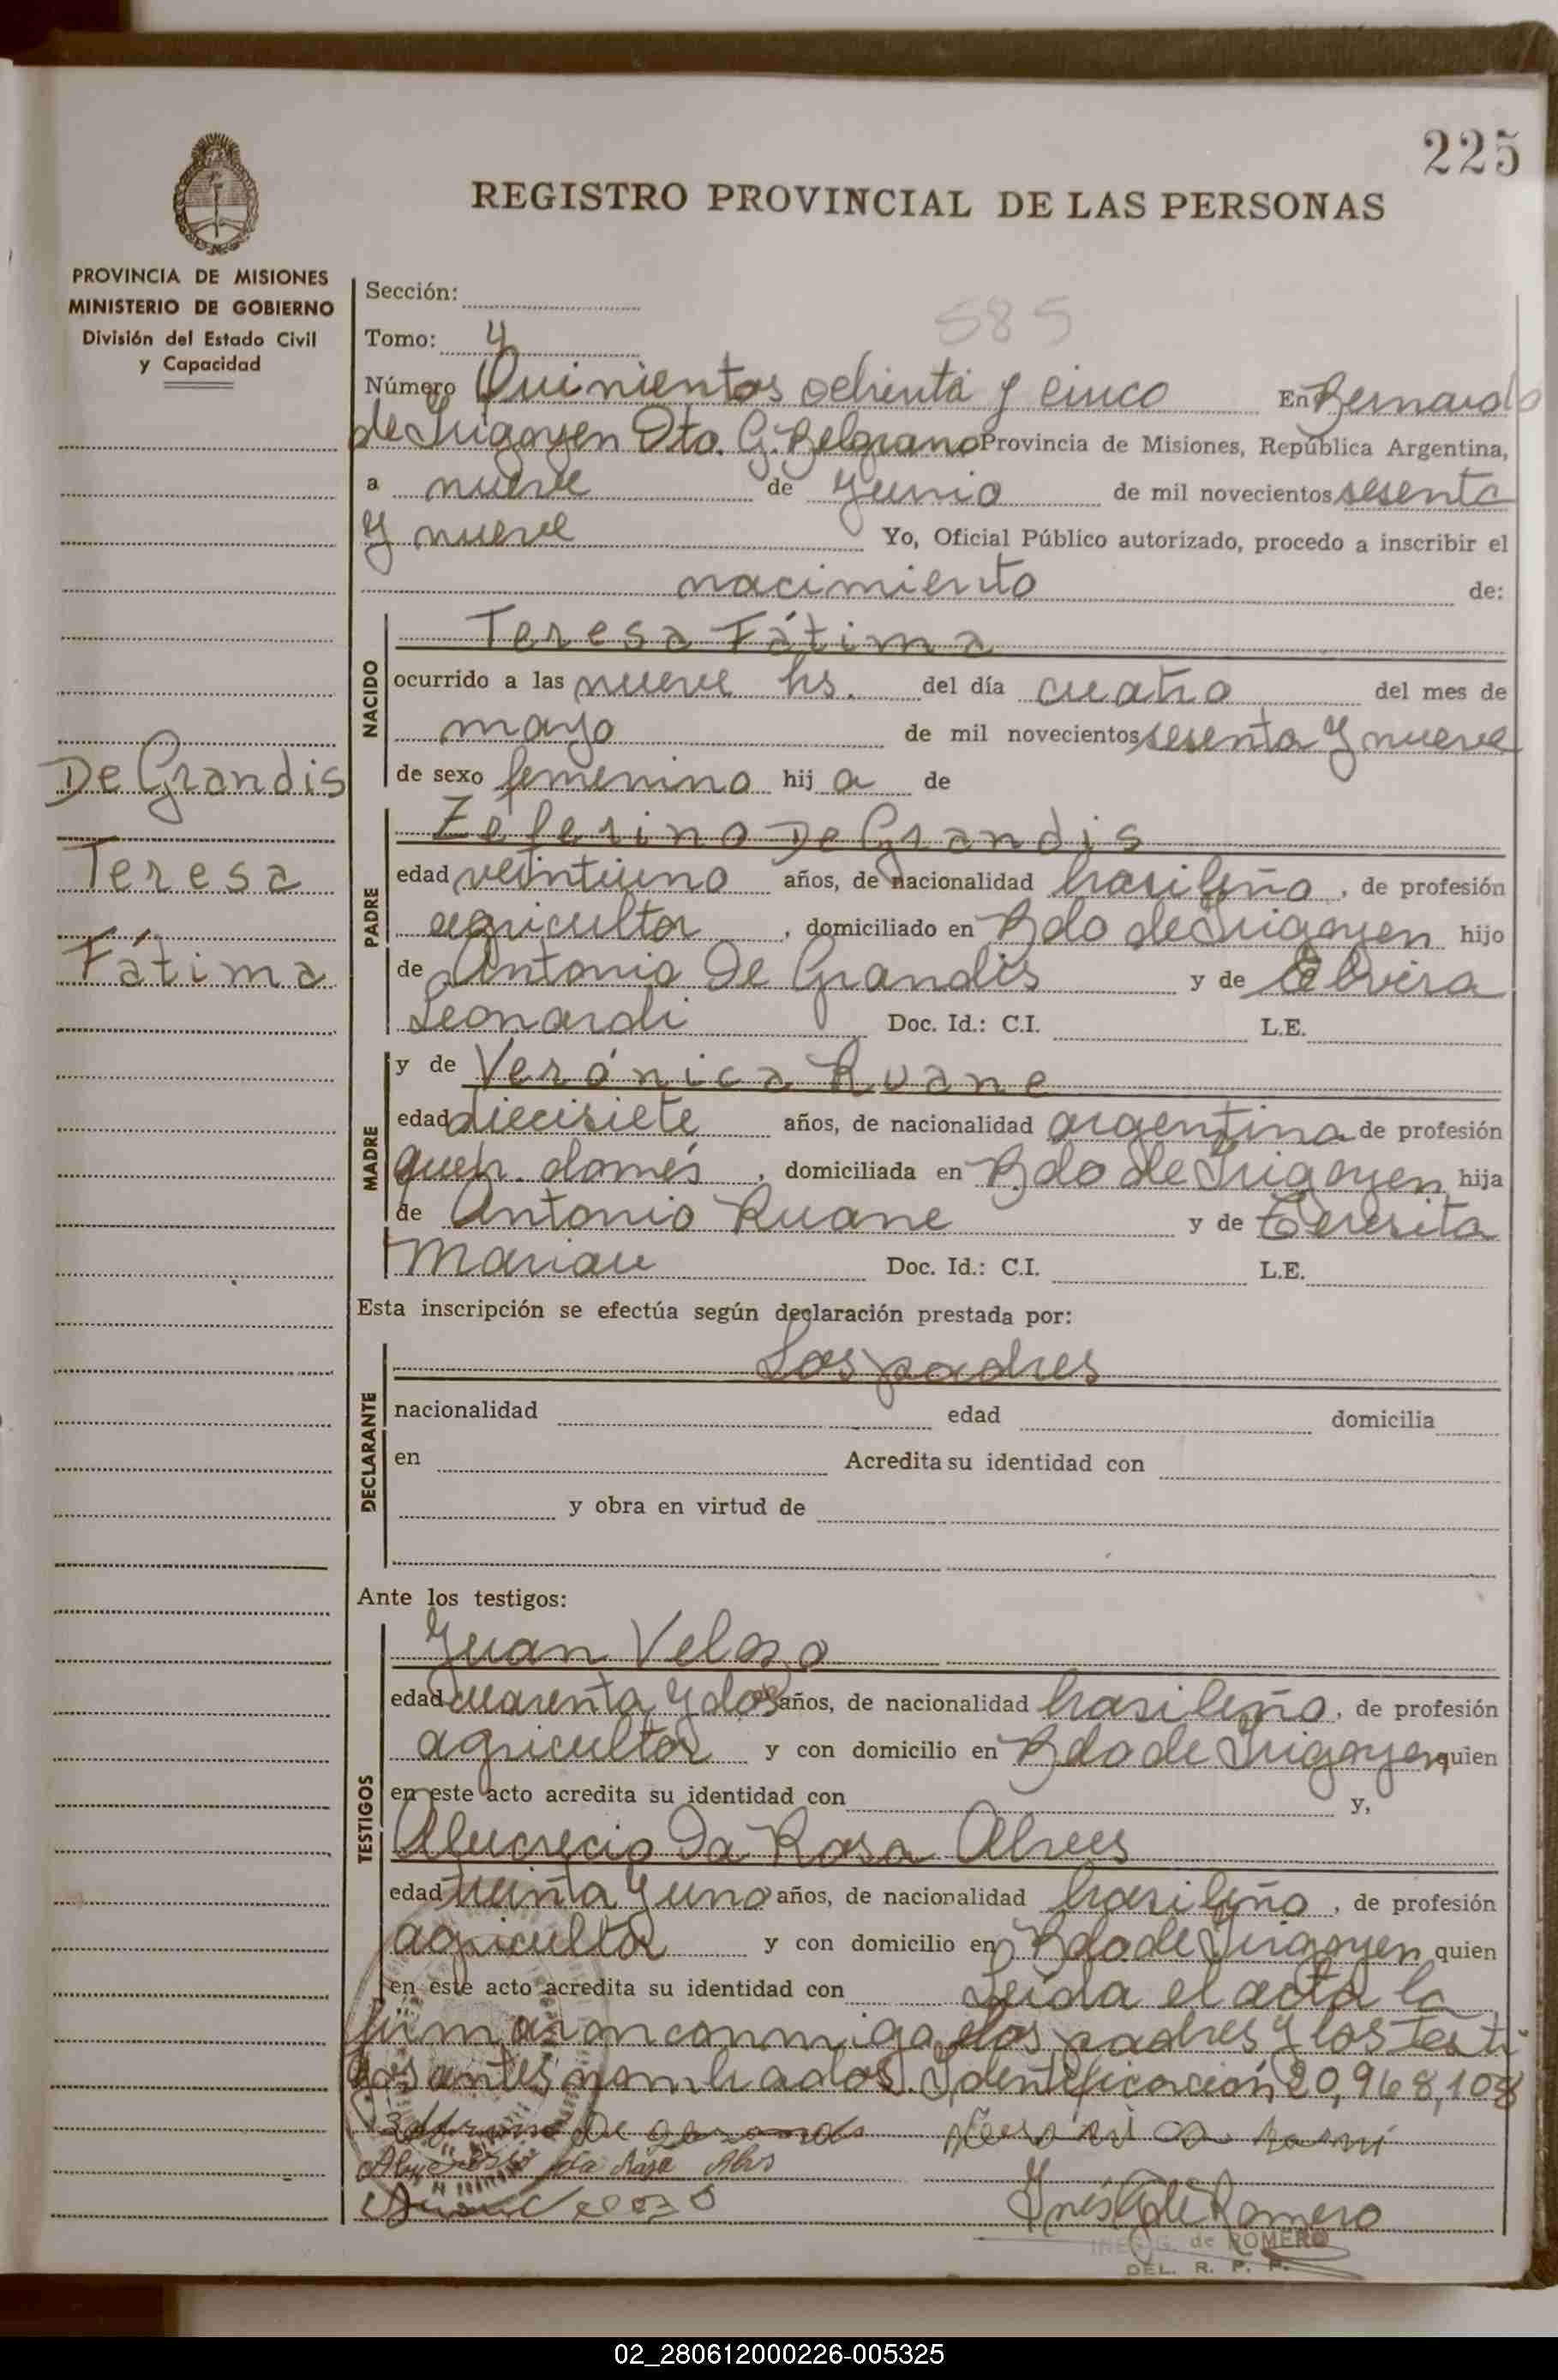 225
REGISTRO PROVINCIAL DE LAS PERSONAS
PROVINCIA DE MISIONES
MINISTERIO DE GOBIERNO
División del Estado Civil
y Capacidad
Sección:
585
Tomo: 4
Número Quinientos ochenta y cinco En Bernardo
de Irigoyen Dto. G. Belgrano Provincia de Misiones, República Argentina,
a nueve de Junio de mil novecientos sesenta
y nueve Yo, Oficial Público autorizado, procedo a inscribir el
nacimiento de:
De Grandis
Teresa
Fátima
NACIDO
Teresa Fátima
ocurrido a las nueve hs. del día cuatro del mes de
mayo de mil novecientos sesenta y nueve
de sexo femenino hij a de
PADRE
Zeferino De Grandis
edad veintiuno años, de nacionalidad brasileño, de profesión
agricultor, domiciliado en Bdo de Irigoyen hijo
de Antonio De Grandis y de Elvira
Leonardi Doc. Id.: C.I. L.E.
MADRE
y de Verónica Ruane
edad diecisiete años, de nacionalidad argentina de profesión
queh. domés, domiciliada en Bdo de Irigoyen hija
de Antonio Ruane y de Teresita
Doc. Id.: C.I. L.E.
Esta inscripción se efectúa según declaración prestada por:
DECLARANTE
Los padres
nacionalidad edad domicilia
en Acredita su identidad con
y obra en virtud de
Ante los testigos:
TESTIGOS
Juan Velozo
edad cuarenta y dos años, de nacionalidad brasileño, de profesión
agricultor y con domicilio en Bdo de Irigoyen quien
en este acto acredita su identidad con y,
da Rosa Alves
edad treinta y uno años, de nacionalidad brasileño, de profesión
agricultor y con domicilio en Bdo de Irigoyen quien
en este acto acredita su identidad con Leída el acta la
firmaron conmigo, los padres y los testi-
gos antes nombrados. Identificación 20,968,108
da Rosa
Inés G de Romero
INES G. de ROMERO
DEL. R. P. P.
02_280612000226-005325